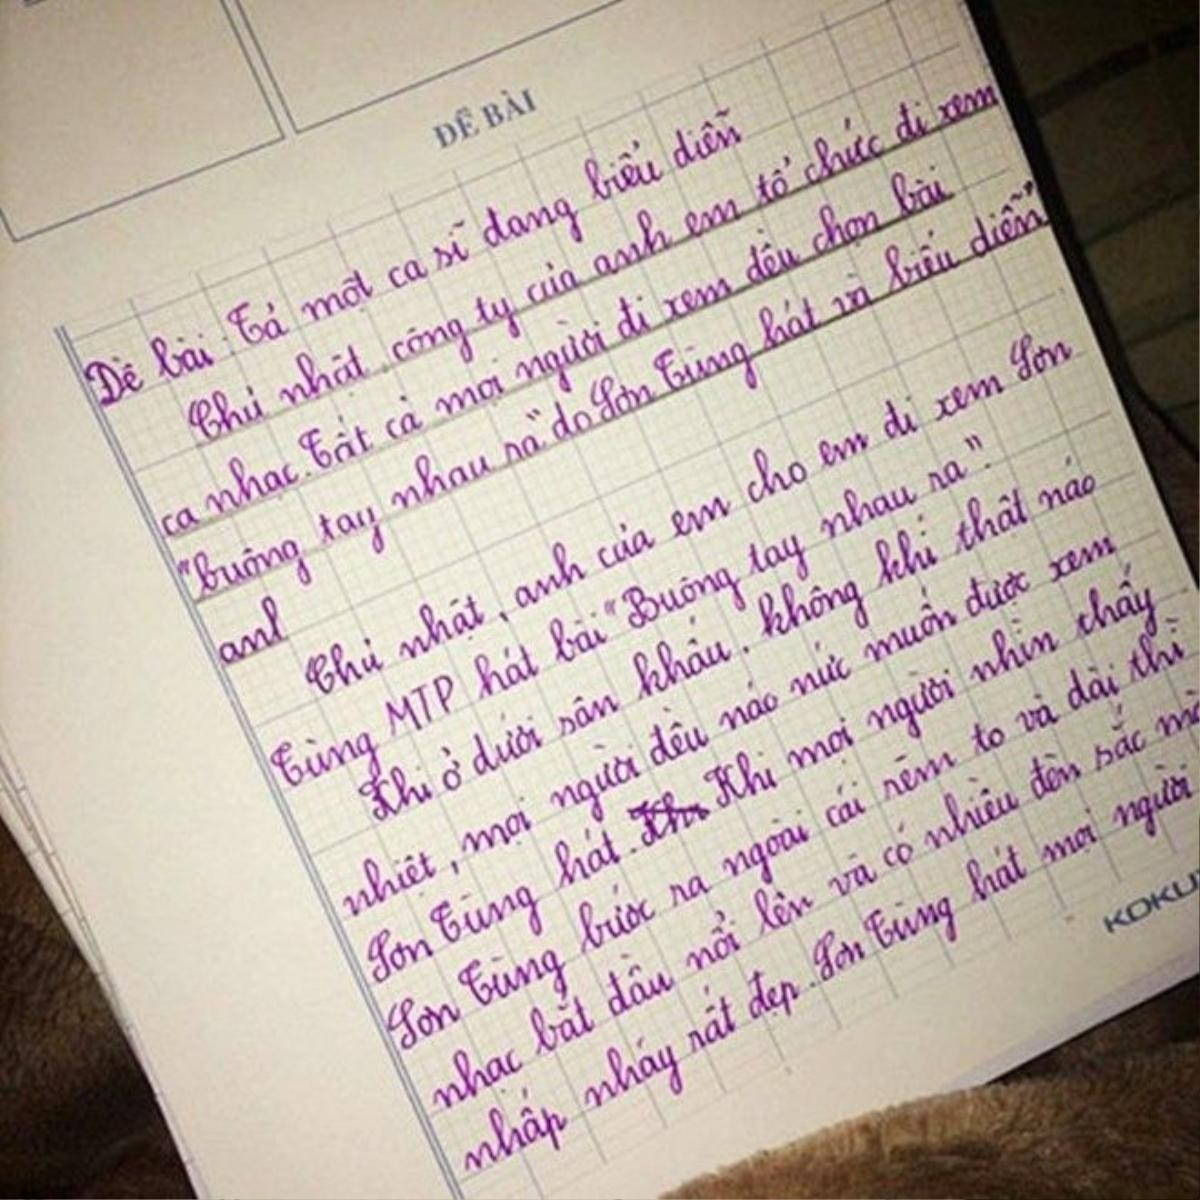 ĐỀ BÀI
Đề bài: Tả một ca sĩ đang biểu diễn
Chủ nhật, công ty của anh em tổ chức đi xem
ca nhạc. Tất cả mọi người đi xem đều chọn bài
"buông tay nhau ra" do Sơn Tùng hát và biểu diễn
anh
Chủ nhật, anh của em cho em đi xem Sơn
Tùng MTP hát bài "Buông tay nhau ra".
Khi ở dưới sân khấu. không khí thât náo
nhiệt, mọi người đều náo nức muốn được xem
Sơn Tùng hát. Khi Khi mọi người nhìn thấy
Sơn Tùng bước ra ngoài cái rèm to và dài thì
nhạc bắt đầu nổi lên và có nhiều đèn sắc mà
nhấp nháy rất đẹp. Sơn Tùng hát mọi người
KOKU